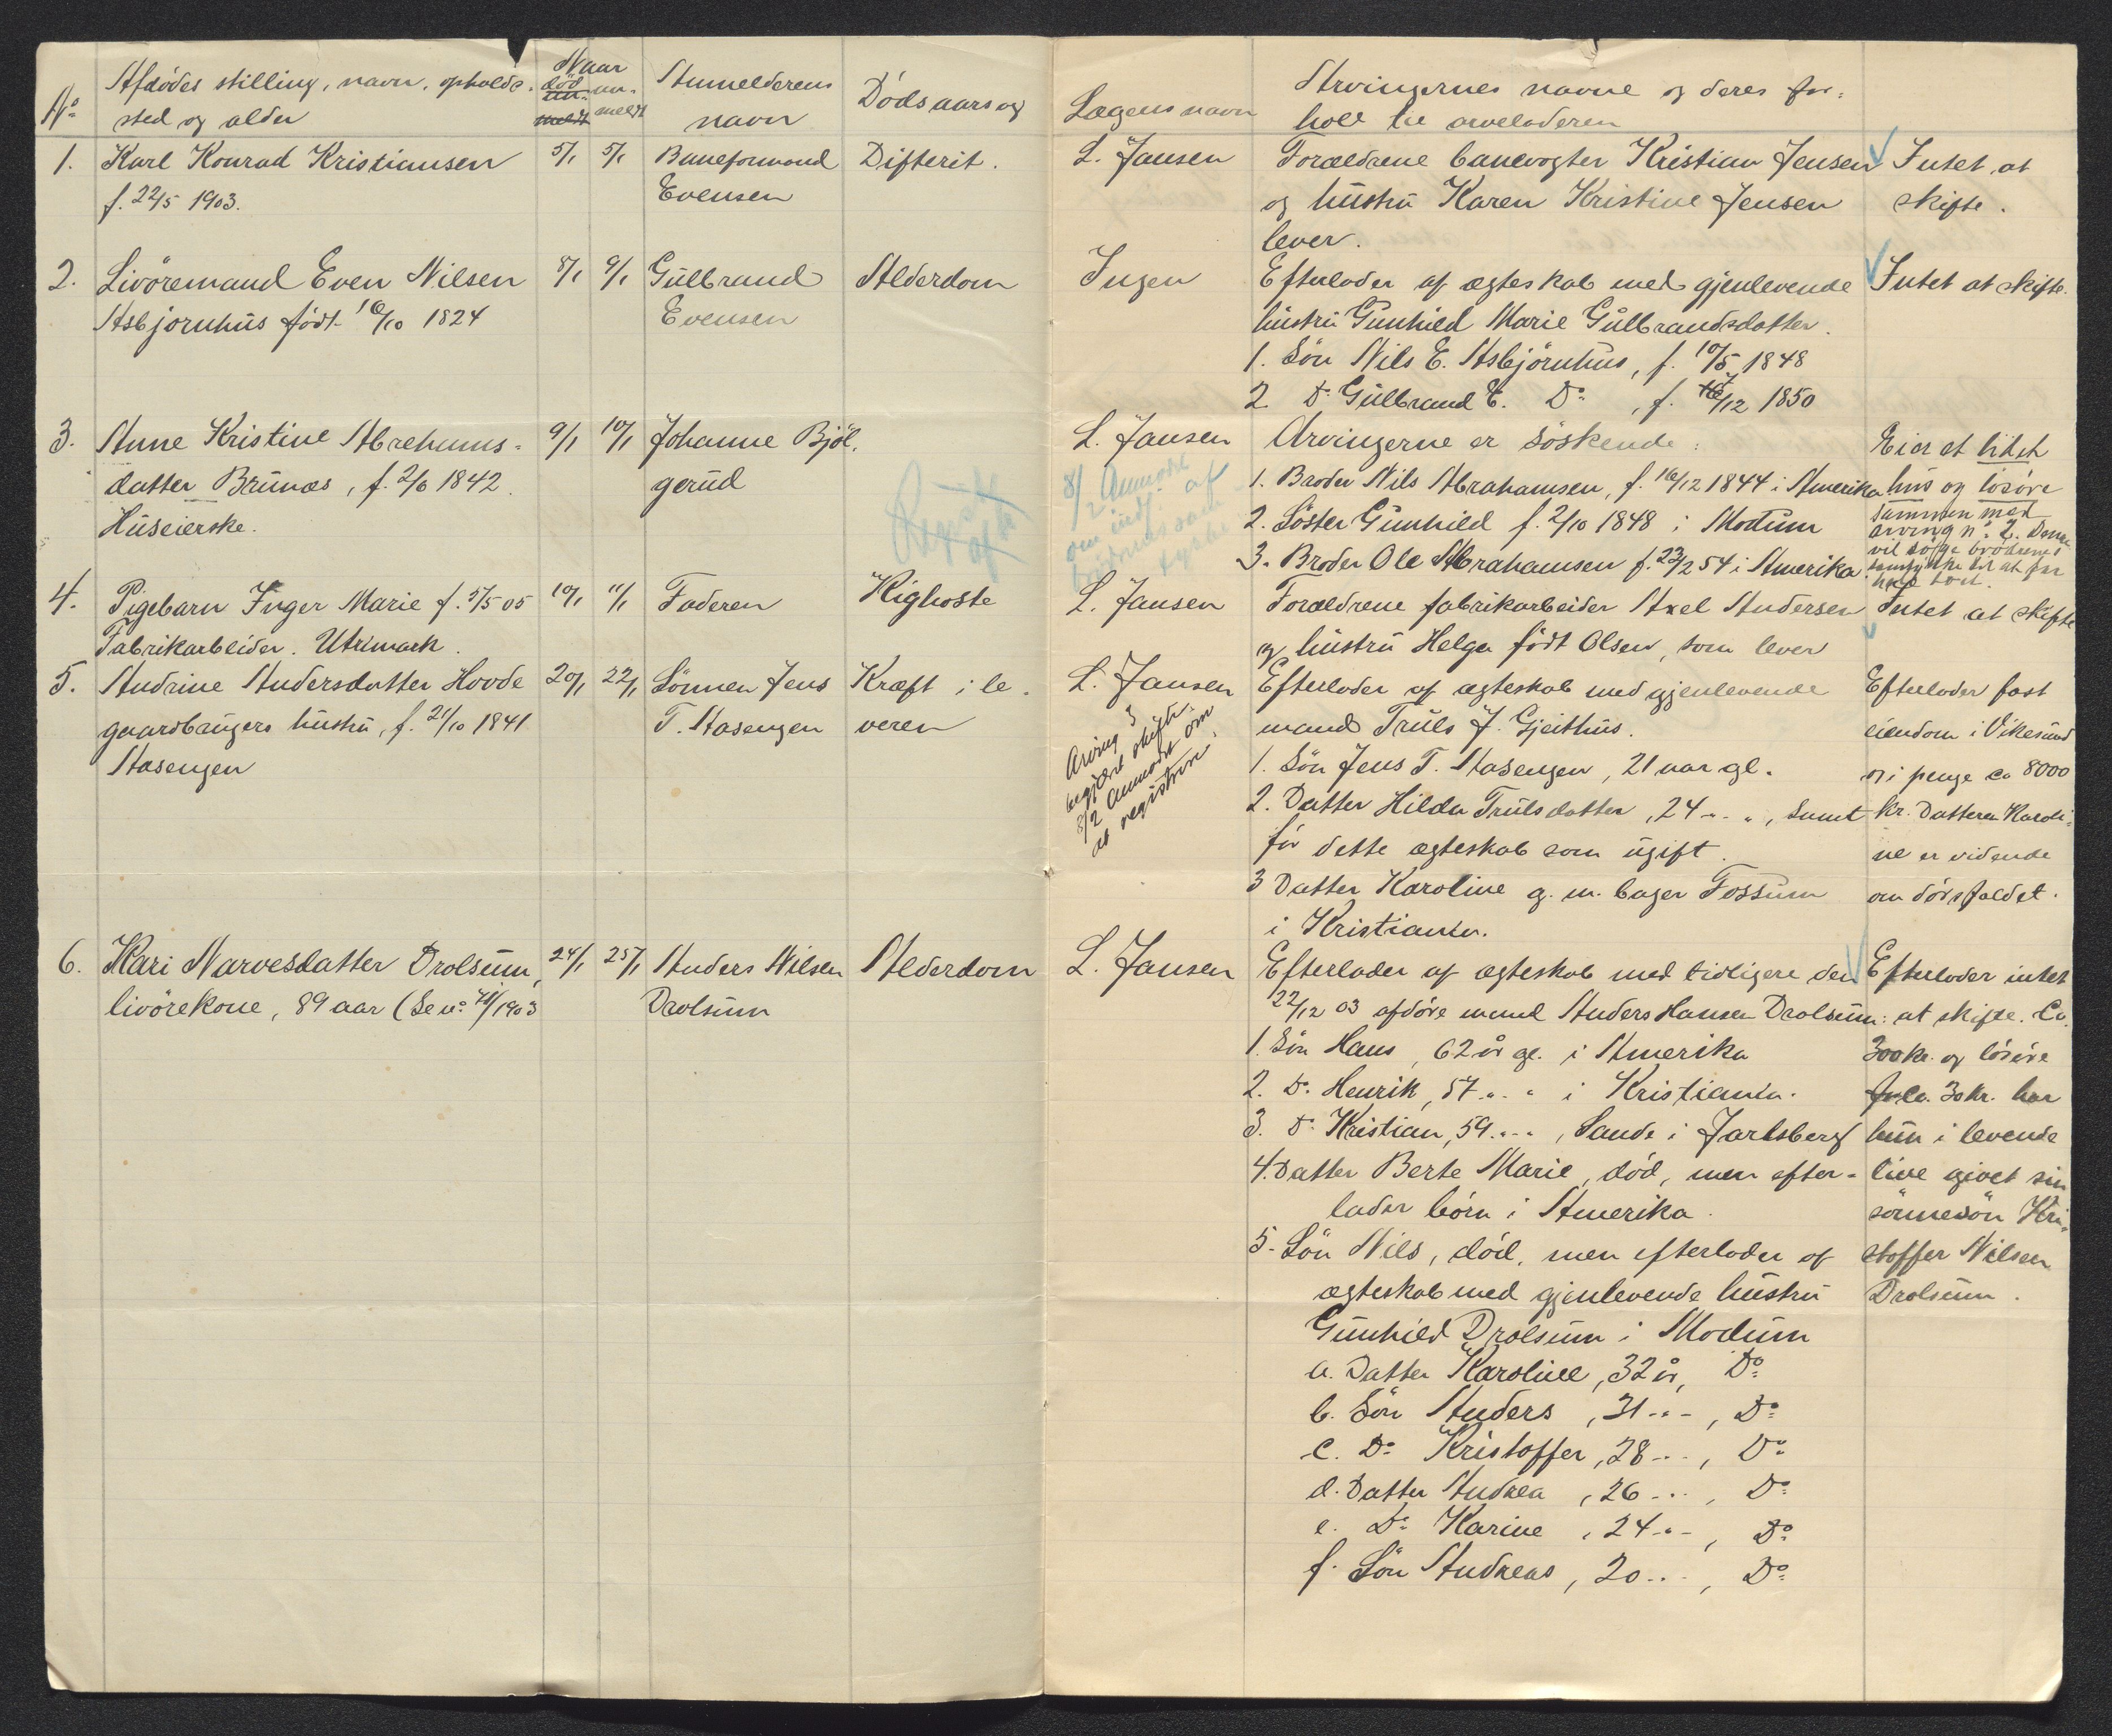 No
Afdødes stilling, navn, opholds-
sted og alder
Naar
død
an-
meldt
Anmelderens
navn
Dødsaarsag
Lægens navn
Arvingernes navne og deres for-
hold til arveladeren
1. Karl Konrad Kristiansen
f. 22/5 1903.
5/1 5/1
Baneformand
Evensen
Difterit.
L. Jansen
Forældrene banevogter Kristian Jensen
og hustru Karen Kristine Jensen
lever.
Intet at
skifte.
2. Livöremand Even Nilsen
Asbjørnhus født 10/10 1824
8/1 9/1
Gulbrand
Evensen
Alderdom
Ingen
Efterlader af ægteskab med gjenlevende
hustru Gunhild Marie Gulbrandsdatter.
1. Sön Nils E. Asbjörnhus, f. 10/5 1848
2 Do Gulbrand E. Do , f. /12 1850
Intet at skifte.
3. Anne Kristine Abrahams-
datter Brunæs, f. 2/6 1842.
Huseierske.
9/1 10/1
Johanne Bjöl-
gerud
L. Jansen
8/2 Anmodt
om indf. af
Arvingerne er söskende:
1. Broder Nils Abrahamsen, f. 16/12 1844 i Amerika
2. Söster Gunhild f. 2/10 1848 i Modum
3. Broder Ole Abrahamsen f. 23/2 54 i Amerika.
Eier et lidet
hus og lösöre
sammen med
arving no 2. Denne
vil söge brödrenes
samtykke til at faa
4. Pigebarn Inger Marie f. 5/5 05
Fabrikarbeider. Utrmark.
10/1 11/1
Faderen
Kighoste
L. Jansen
Forældrene fabrikarbeider Axel Andersen
og hustru Helga født Olsen, som lever
Intet at skifte
5. Andrine Andersdatter Hovde
gaardbrugers hustru, f. 21/10 1841
Aasengen
20/1 22/1
Sönnen Jens
T. Aasengen
Kræft i le-
veren
L. Jansen
Arving 3
begjært skifte.
8/2 anmodt om
at registrere.
Efterlader af ægteskab med gjenlevende
mand Truls J. Gjeithus.
1. Sön Jens T. Aasengen, 21 aar gl.
2. Datter Hilda Trulsdatter, 24 " ", samt
för dette ægteskab som ugift.
3 Datter Karoline g. m. bager Fossum
i Kristiania.
Efterlader fast
eiendom i Vikesund
og i penge ca 8000
kr. Datteren Karoli-
ne er vidende
om dödsfaldet.
6. Kari Narvesdatter Drolsum,
livörekone, 89 aar (Se no 41/1903
24/1 25/1
Anders Nilsen
Drolsum
Alderdom
L. Jansen
Efterlader af ægteskab med tidligere den
22/12 03 afdöde mand Anders Hansen Drolsum:
1. Sön Hans, 62 år gl. i Amerika
2. Do Henrik, 57 " " i Kristiania.
3. Do Kristian, 59 " ", Sande i Jarlsberg
4. Datter Berte Marie, död, men efter-
lader börn i Amerika.
5. Sön Nils, död, men efterlader af
ægteskab med gjenlevende hustru
Gunhild Drolsum i Modum
a. Datter Karoline, 32 år, Do
b. Sön Anders, 31 " ", Do
c. Do Kristoffer, 28 " ", Do
d. Datter Andrea, 26 " ", Do
e. Do Karine, 24 " ", Do
f. Sön Andreas, 20 " ", Do
Efterlader intet
at skifte. Ca.
300 kr. og lösöre
30 kr. har
hun i levende
live givet sin
sönnesön Kri-
stoffer Nilsen
Drolsum.